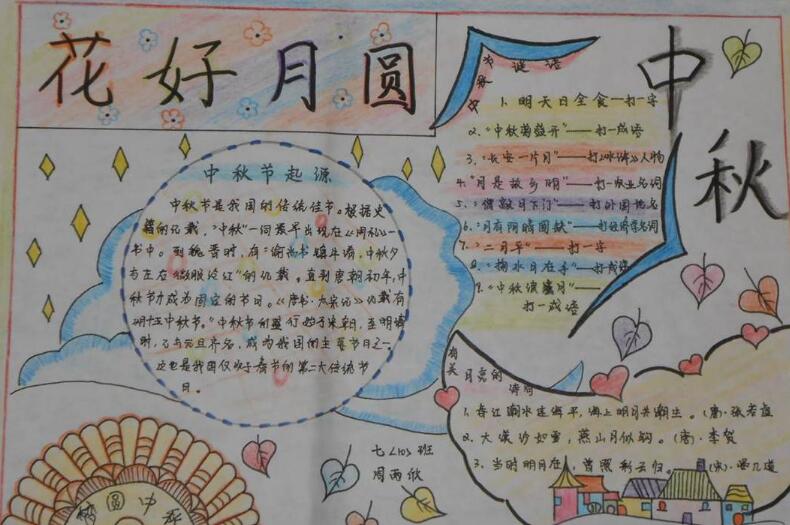 花好月圆
中秋
中秋节起源
中秋节是我国的传统佳节。根据史
籍的记载，“中秋”一词最早出现在《周礼》一
书中。到魏晋时，有“谕尚书镇牛渚，中秋夕
与左右微服泛江”的记载。直到唐朝初年，中
秋节才成为固定的节日。《唐书·太宗记》记载有
“八月十五中秋节。”中秋节的盛行始于宋朝，至明清
时，已与元旦齐名，成为我国的主要节日之一。
这也是我国仅次于春节的第二大传统节
日。
中秋节谜语
1. 明天日全食——打一字
2.“中秋菊盛开”——打一成语
3.“长安一片月”——打《水浒》人物
4.“月是故乡明”——打一
5.“僧敲月下门”——打外国地名
6.“月有阴晴圆缺”——打经济学名词
7.“二月平”——打一字
8.“掬水月在手”——打成语
9.“中秋滨赏月”——
打一成语
有关月亮的诗句
1. 春江潮水连海平，海上明月共潮生。（唐）张若虚
2. 大漠沙如雪，燕山月似钩。（唐）李贺
3. 当时明月在，曾照彩云归。（宋）晏几道
七〈10〉班
周雨欣
圆中秋